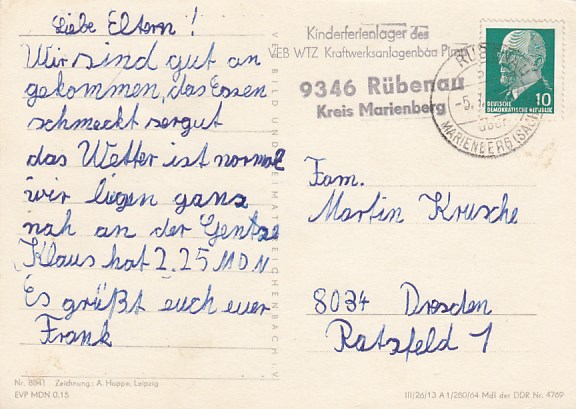 Liebe Eltern!
Wir sind gut an
gekommen, das Essen
schmeckt sergut
das Wetter ist normal
wir liegen ganz
nah an der Gentze
Klaus hat 2.25 MDN
Es grüßt euch euer
Frank
Nr. 8041 Zeichnung: A. Hoppe, Leipzig
EVP MDN 0,15
VEB BILD UND HEIMAT REICHENBACH I. V.
Kinderferienlager des
VEB WTZ Kraftwerksanlagenbau Pirna
9346 Rübenau
Kreis Marienberg
DEUTSCHE
DEMOKRATISCHE REPUBLIK 10
MARIENBERG (SACHS)
Fam.
Martin Krusche
8034 Dresden
Ratsfeld 1
III/26/13 A 1/280/64 MdI der DDR Nr. 4769